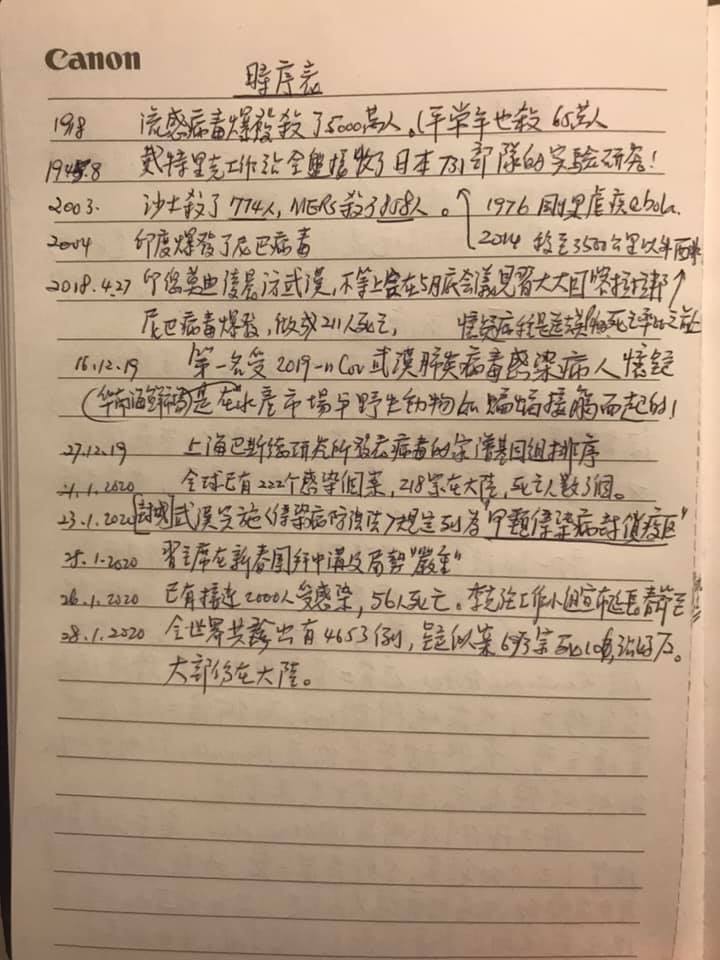 Canon
時序表
1918 流感病毒爆發殺了5000萬人。(平常年也殺65萬人
1945.8 戴特里克工作站全盤接收了日本731部隊的实驗研究!
2003. 沙士殺了774人, MERS殺了858人。 1976 Ebola.
2004 印度爆發了尼巴病毒 2014
2018.4.27 印总莫曲 訪武漢, 不等上合在5月底会議見習大大
尼巴病毒爆發, 做成211人死亡,
16.12.19 第一名受2019-nCov武漢肺炎病毒感染病人懷疑
(华南海鮮 是在水產市場与野生动物如蝙蝠接触而起的!
27.12.19 上海巴斯德研究所發表病毒的 基因組排序
21.1.2020 全球已有222个感染個案, 218宗在大陸, 死亡人數3個。
23.1.2020 封城 武漢实施《传染病防治法》規定列为"甲類傳染病封鎖疫区"
25.1.2020 習主席在新春團拜中講及局勢"嚴重"
26.1.2020 已有接近2000人受感染, 56人死亡。李克強工作小組宣布延長春節至
28.1.2020 全世界共診出有4653例, 疑似案6973宗死
大部份在大陸。